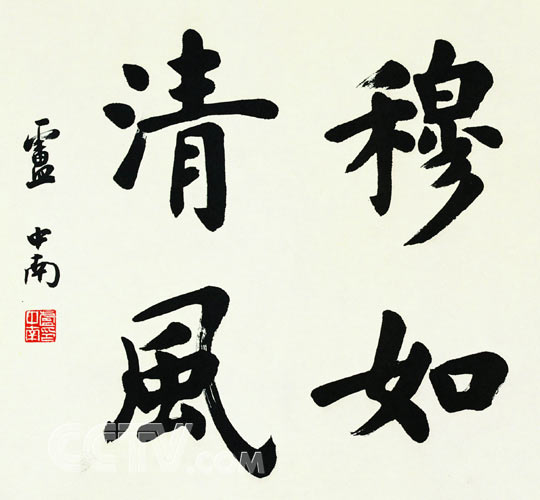 穆如
清風
盧中南
盧中南印
CCTV.com